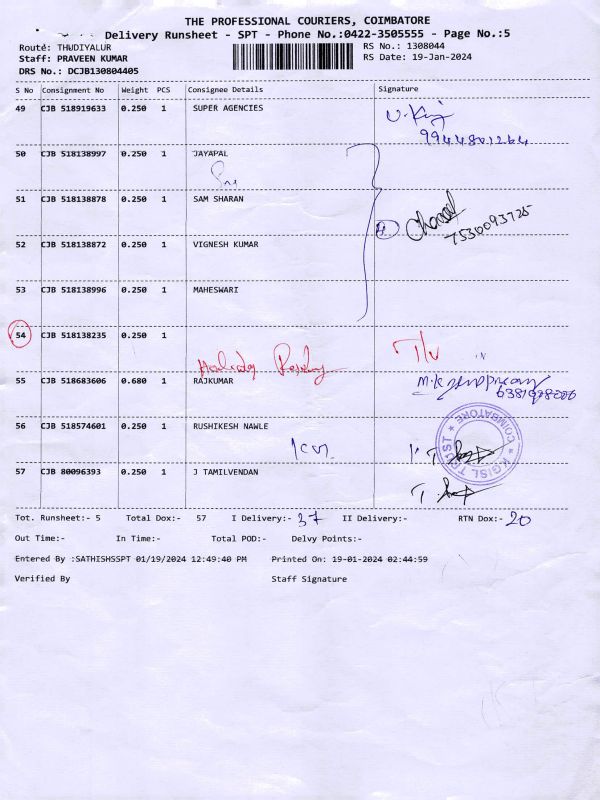 THE PROFESSIONAL COURIERS, COIMBATORE
Delivery Runsheet - SPT - Phone No.:0422-3505555 - Page No.:5
Route: THUDIYALUR RS No.: 1308044
Staff: PRAVEEN KUMAR RS Date: 19-Jan-2024
DRS No.: DCJB130804405
S No Consignment No Weight PCS Consignee Details Signature
49 CJB 518919633 0.250 1 SUPER AGENCIES
9944801264
50 CJB 518138997 0.250 1 JAYAPAL
51 CJB 518138878 0.250 1 SAM SHARAN
7530093725
52 CJB 518138872 0.250 1 VIGNESH KUMAR
53 CJB 518138996 0.250 1 MAHESWARI
54 CJB 518138235 0.250 1
55 CJB 518683606 0.680 1 RAJKUMAR
56 CJB 518574601 0.250 1 RUSHIKESH NAWLE
KGISL TRUST * COIMBATORE *
57 CJB 80096393 0.250 1 J TAMILVENDAN
Tot. Runsheet:- 5 Total Dox:- 57 I Delivery:- 37 II Delivery:- RTN Dox:- 20
Out Time:- In Time:- Total POD:- Delvy Points:-
Entered By :SATHISHSSPT 01/19/2024 12:49:40 PM Printed On: 19-01-2024 02:44:59
Verified By Staff Signature